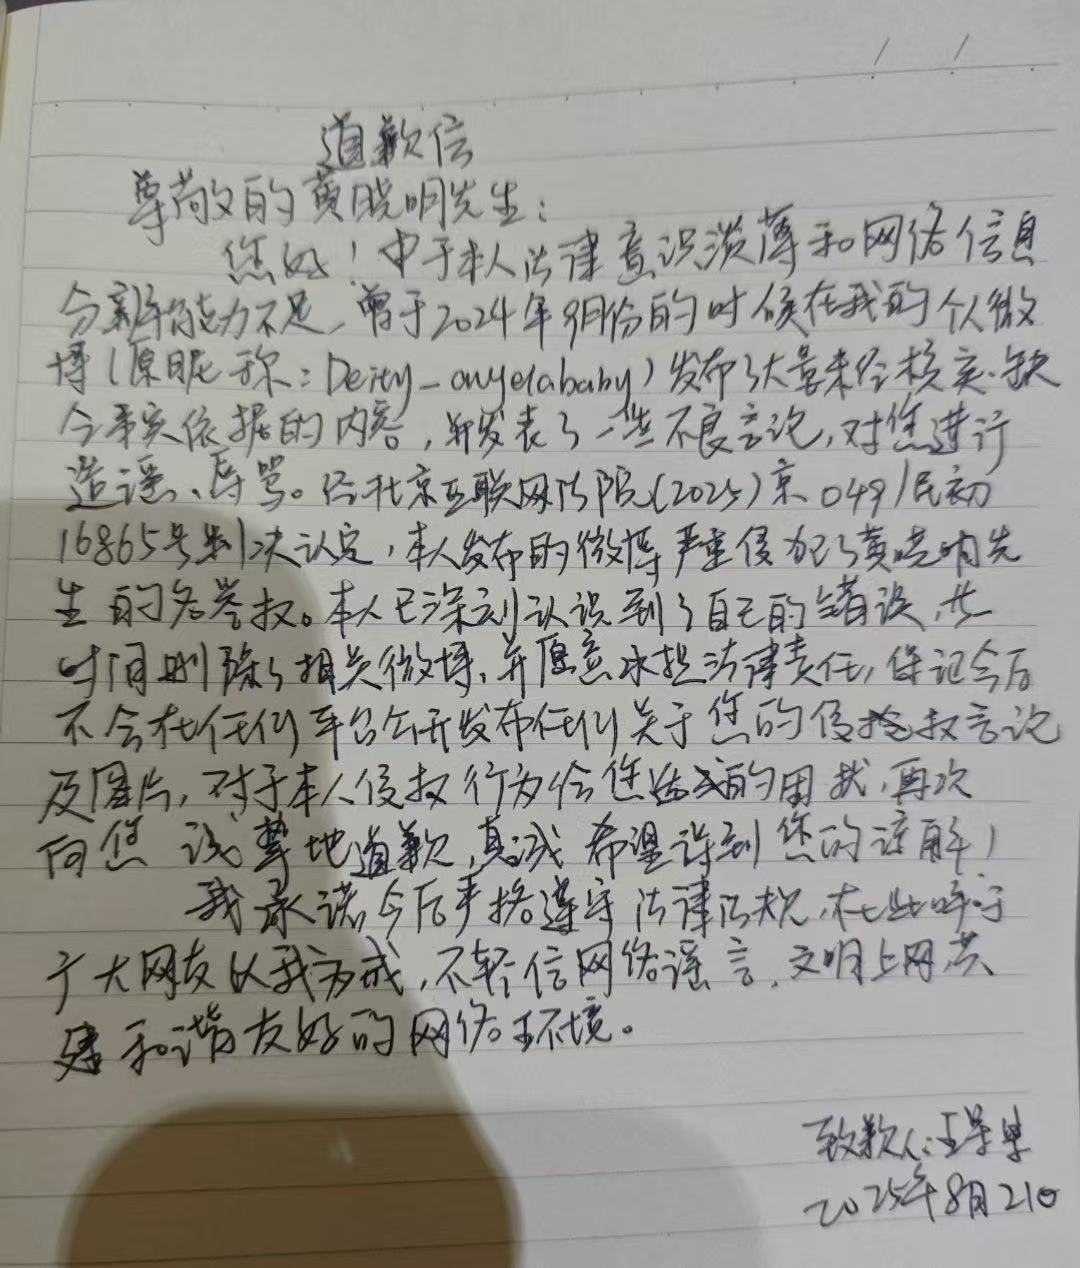 道歉信
尊敬的黄晓明先生：
您好！由于本人法律意识淡薄和网络信息
分辨能力不足，曾于2024年9月份的时候在我的个人微
博（原昵称：Deity_onyelababy）发布了大量未经核实、缺
令事实依据的内容，并发表了一些不良言论，对您进行
造谣、辱骂。经北京互联网法院（2025）京0491民初
16865号判决认定，本人发布的微博严重侵犯了黄晓明先
生的名誉权。本人已深刻认识到了自己的错误，此
时间删除了相关微博，并愿意承担法律责任，保证今后
不会在任何平台公开发布任何关于您的侵权言论
及图片，对于本人侵权行为给您造成的困扰，再次
向您诚挚地道歉，真诚希望得到您的谅解！
我承诺今后严格遵守法律法规，在此呼吁
广大网友以我为戒，不轻信网络谣言，文明上网共
建和谐友好的网络环境。
致歉人：王
2025年8月21日